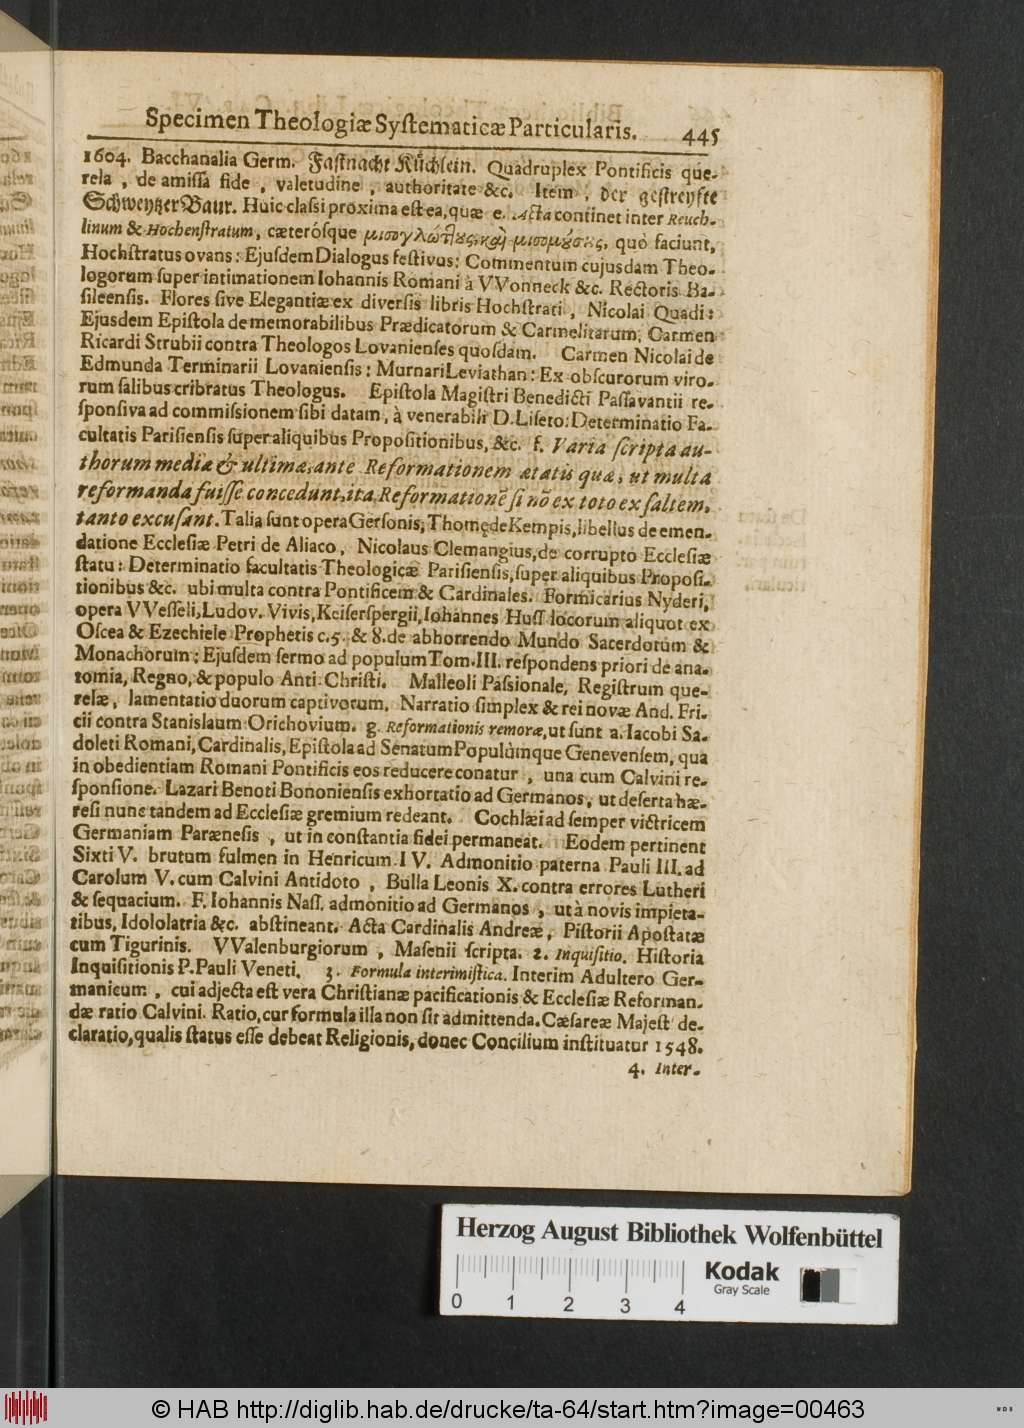 Specimen Theologiæ Syſtematicæ Particularis. 445
1604. Bacchanalia Germ. Faſtnacht Küchlein. Quadruplex Pontificis que-
rela, de amiſſa fide, valetudine, authoritate &c. Item, der geſtreyfte
Schweytzer Baur. Huic claſſi proxima eſt ea, quæ e. Acta continet inter Reuch-
linum & Hochenſtratum, cæterósque μισογλώττους, καὶ μισομούσους, quò faciunt,
Hochſtratus ovans: Ejuſdem Dialogus feſtivus: Commentum cujusdam Theo-
logorum ſuper intimationem Iohannis Romani à VVonneck &c. Rectoris Ba-
ſileenſis. Flores ſive Elegantiæ ex diverſis libris Hochſtrati, Nicolai Quadi:
Ejusdem Epiſtola de memorabilibus Prædicatorum & Carmelitarum, Carmen
Ricardi Strubii contra Theologos Lovanienſes quoſdam. Carmen Nicolai de
Edmunda Terminarii Lovanienſis: Murnari Leviathan: Ex obſcurorum viro-
rum ſalibus cribratus Theologus. Epiſtola Magiſtri Benedicti Paſſavantii re-
ſponſiva ad commiſsionem ſibi datam, à venerabili D. Liſeto: Determinatio Fa-
cultatis Pariſienſis ſuper aliquibus Propoſitionibus, &c. f. Varia ſcripta au-
thorum mediæ & ultimæ, ante Reformationem ætatis quæ, ut multa
reformanda fuiſſe concedunt, ita, Reformationẽ ſi nõ ex toto ex ſaltem,
tanto excuſant. Talia ſunt opera Gerſonis, Thomę de Kempis, libellus de emen-
datione Eccleſiæ Petri de Aliaco, Nicolaus Clemangius, de corrupto Eccleſiæ
ſtatu: Determinatio facultatis Theologicæ Pariſienſis, ſuper aliquibus Propoſi-
tionibus &c. ubi multa contra Pontificem & Cardinales. Formicarius Nyderi,
opera VVeſſeli, Ludov. Vivis, Keiſerſpergii, Iohannes Huſſ locorum aliquot ex
Oſcea & Ezechiele Prophetis c. 5. & 8. de abhorrendo Mundo Sacerdotum &
Monachorum: Ejuſdem ſermo ad populum Tom. III. reſpondens priori de ana-
tomia, Regno, & populo Anti-Chriſti. Malleoli Paſsionale, Regiſtrum que-
relæ, lamentatio duorum captivorum, Narratio ſimplex & rei novæ And. Fri-
cii contra Stanislaum Orichovium. g. Reformationis remoræ, ut ſunt a. Iacobi Sa-
doleti Romani, Cardinalis, Epiſtola ad Senatum Populùmque Genevenſem, qua
in obedientiam Romani Pontificis eos reducere conatur, una cum Calvini re-
ſponſione. Lazari Benoti Bononienſis exhortatio ad Germanos, ut deſerta hæ-
reſi nunc tandem ad Eccleſiæ gremium redeant. Cochlæi ad ſemper victricem
Germaniam Parænesis, ut in conſtantia fidei permaneat. Eodem pertinent
Sixti V. brutum fulmen in Henricum IV. Admonitio paterna Pauli III. ad
Carolum V. cum Calvini Antidoto, Bulla Leonis X. contra errores Lutheri
& ſequacium. F. Iohannis Naſſ. admonitio ad Germanos, ut à novis impieta-
tibus, Idololatria &c. abſtineant. Acta Cardinalis Andreæ, Piſtorii Apoſtatæ
cum Tigurinis. VValenburgiorum, Maſenii ſcripta. 2. Inquiſitio. Hiſtoria
Inquiſitionis P. Pauli Veneti. 3. Formula interimiſtica. Interim Adultero Ger-
manicum, cui adjecta eſt vera Chriſtianæ pacificationis & Eccleſiæ Reforman-
dæ ratio Calvini. Ratio, cur formula illa non ſit admittenda. Cæſareæ Majeſt de-
claratio, qualis ſtatus eſſe debeat Religionis, donec Concilium inſtituatur 1548.
4. Inter-
Herzog August Bibliothek Wolfenbüttel
Kodak
Gray Scale
0 1 2 3 4
© HAB http://diglib.hab.de/drucke/ta-64/start.htm?image=00463